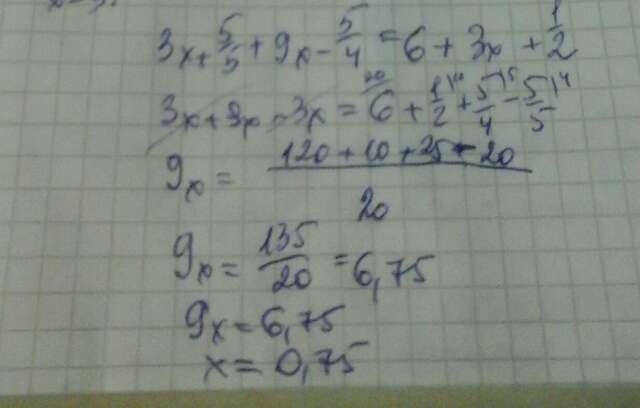 3x + 5/5 + 9x - 5/4 = 6 + 3x + 1/2
3x + 9x - 3x = 6 + 1/2 + 5/4 - 5/5
9x = (120 + 10 + 25 - 20)/20
9x = 135/20 = 6,75
9x = 6,75
x = 0,75